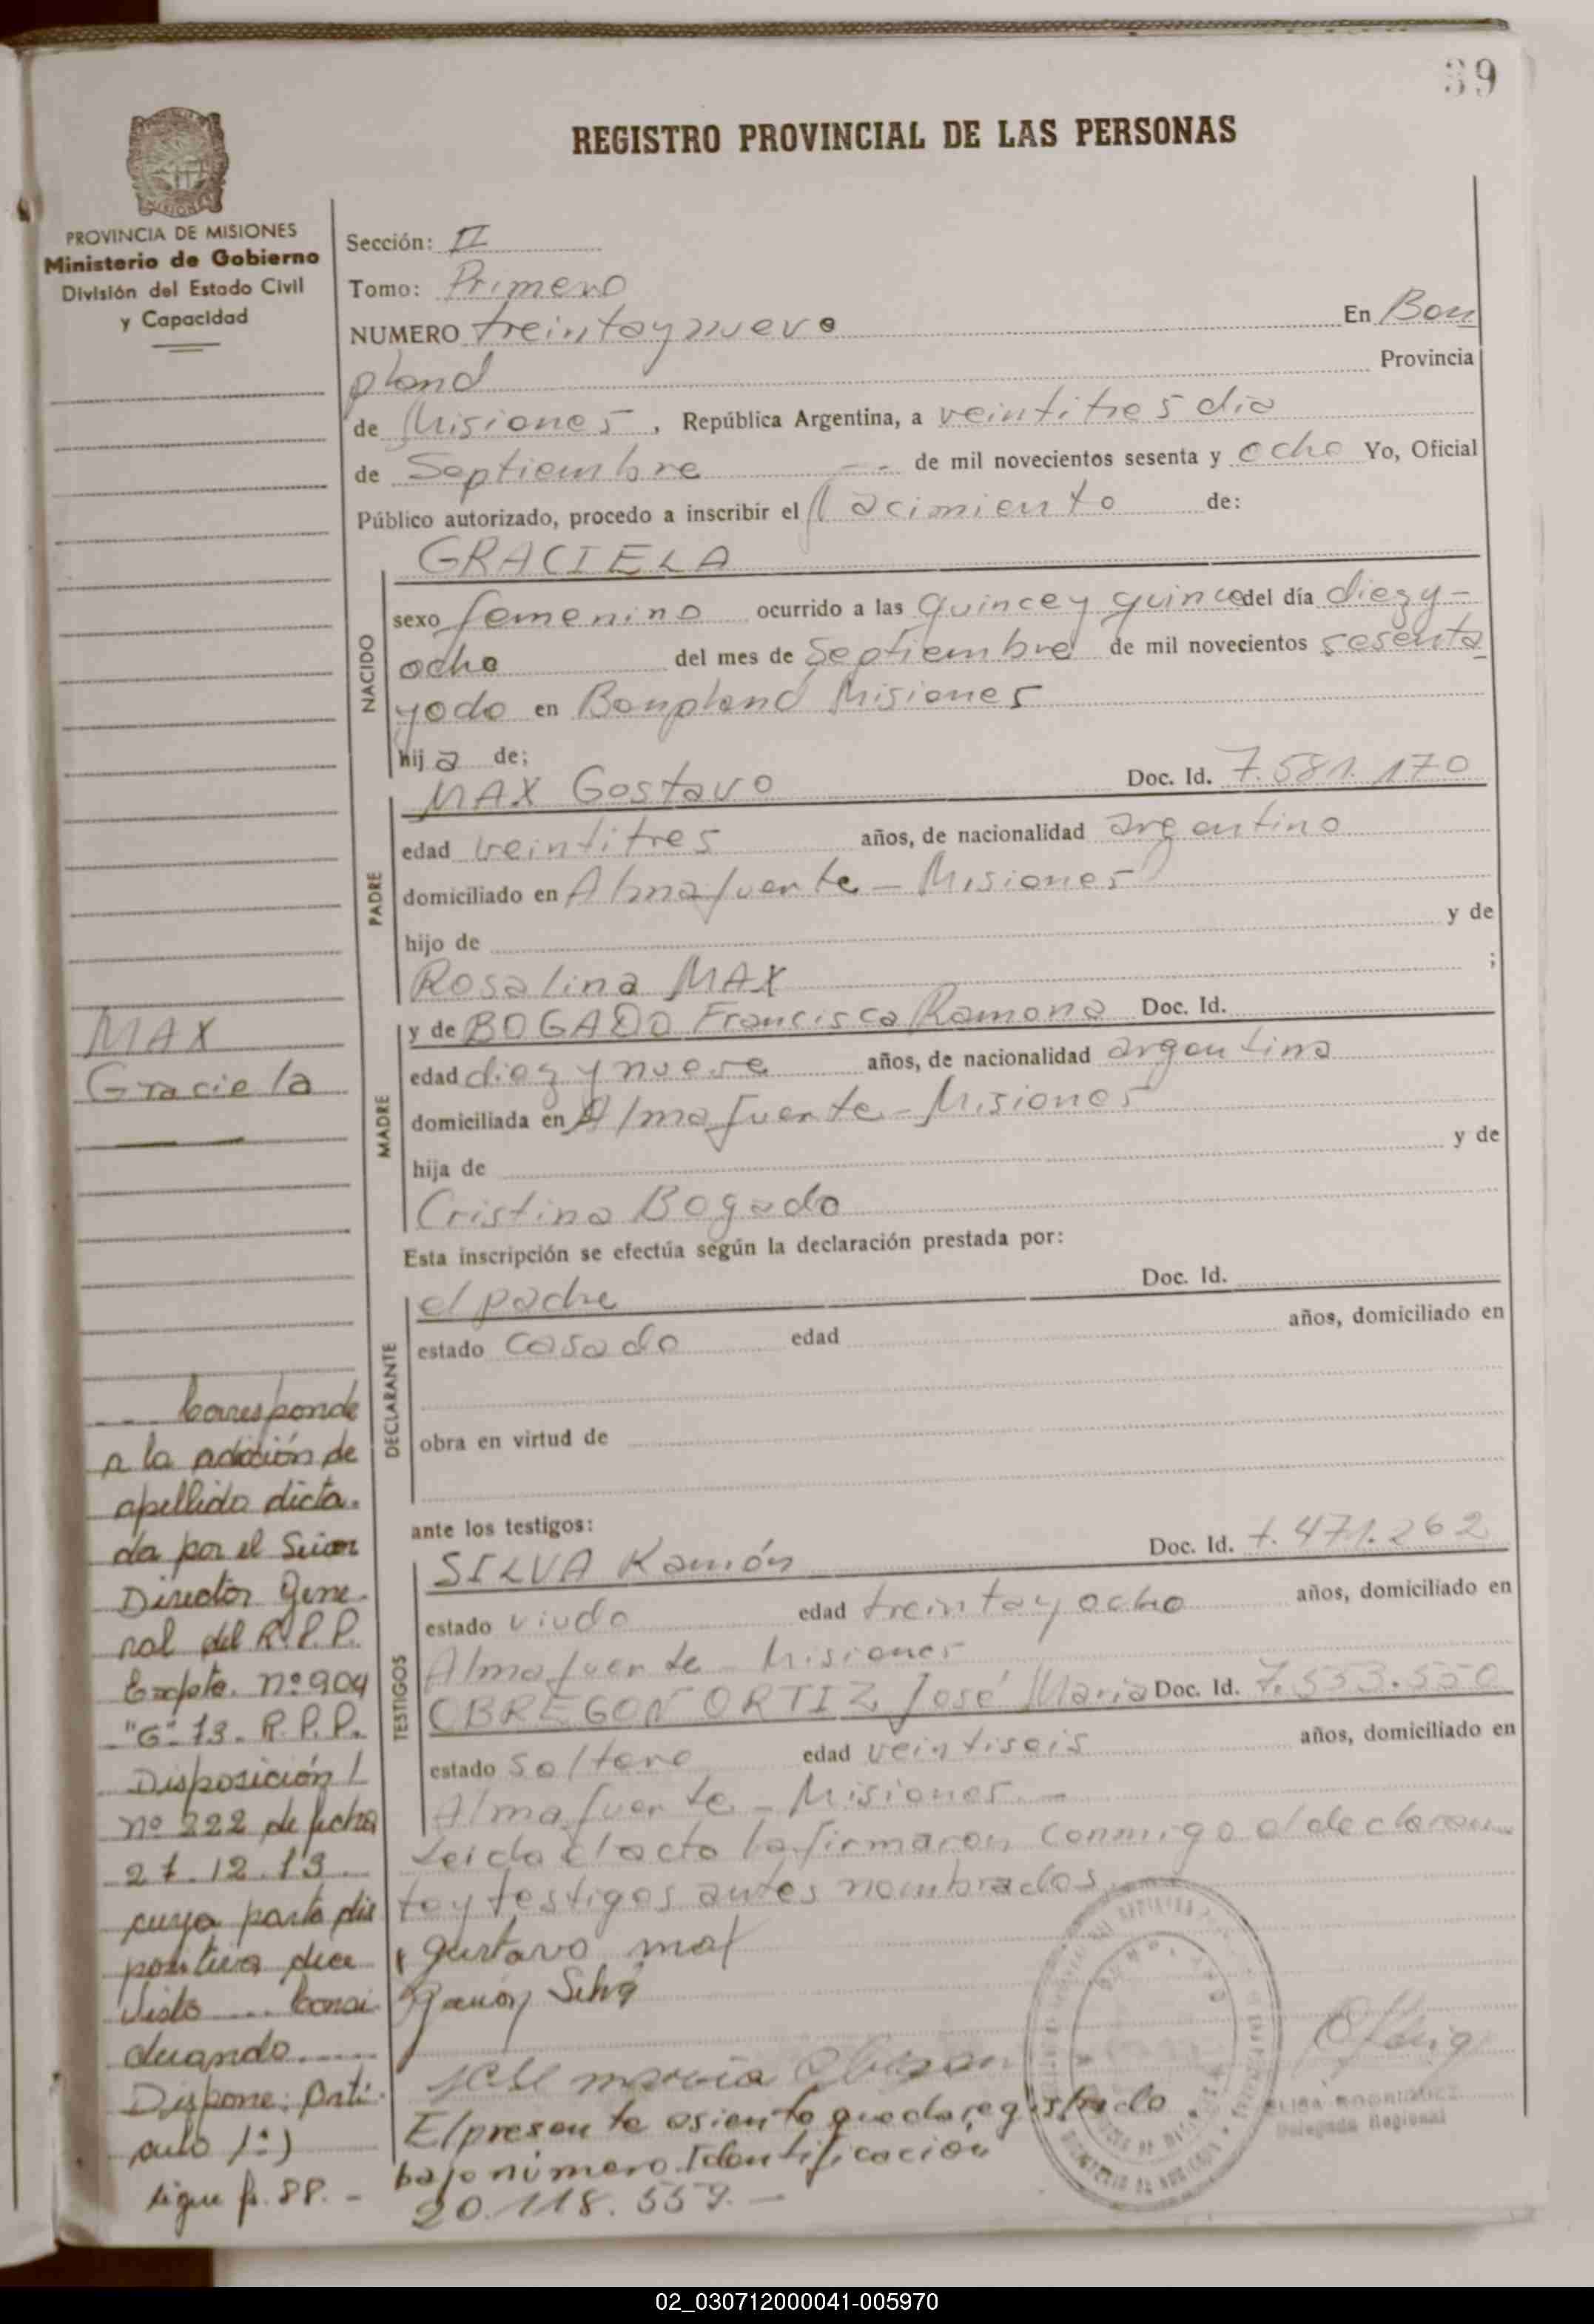 39
REGISTRO PROVINCIAL DE LAS PERSONAS
PROVINCIA DE MISIONES
Ministerio de Gobierno
División del Estado Civil
y Capacidad
Sección: II
Tomo: Primero
NUMERO treintaynueve En Bon
pland Provincia
de Misiones, República Argentina, a veintitres dia
de Septiembre -- de mil novecientos sesenta y ocho Yo, Oficial
Público autorizado, procedo a inscribir el Nacimiento de:
GRACIELA
NACIDO
sexo femenino ocurrido a las quince y quince del día diez y-
ocho del mes de Septiembre de mil novecientos sesenta
yocho en Bonpland Misiones
hija de;
PADRE
MAX Gostavo Doc. Id. 7.581.170
edad veintitres años, de nacionalidad argentino
domiciliado en Almafuerte - Misiones
hijo de y de
Rosalina MAX ;
MADRE
y de BOGADO Francisca Ramona Doc. Id.
edad diez y nueve años, de nacionalidad argentina
domiciliada en Almafuerte - Misiones
hija de y de
Cristina Bogado
Esta inscripción se efectúa según la declaración prestada por:
DECLARANTE
el padre Doc. Id.
estado casado edad años, domiciliado en
obra en virtud de
ante los testigos:
TESTIGOS
SILVA Ramón Doc. Id. 7.471.262
estado viudo edad treintayocho años, domiciliado en
Almafuerte - Misiones
OBREGON ORTIZ José Maria Doc. Id. 7.553.550
estado soltero edad veintiseis años, domiciliado en
Almafuerte - Misiones.-
Leida el acta la firmaron conmigo el declaran
te y testigos antes nombrados
gustavo max
Ramón Silva
José maria Obregon
El presente asiento queda registrado
bajo número Identificación
20.118.559.-
Delegada Regional
MAX
Graciela
Corresponde
a la adición de
apellido dicta-
da por el Señor
Director Gene-
ral del R.P.P.
Expte. nº 904
"G" 73. R.P.P.
Disposición
nº 222 de fecha
27.12.73
cuya parte dis
positiva dice
Visto... Consi
derando.....
Dispone: Artí-
culo 1º)
sigue fs. 88.-
02_030712000041-005970